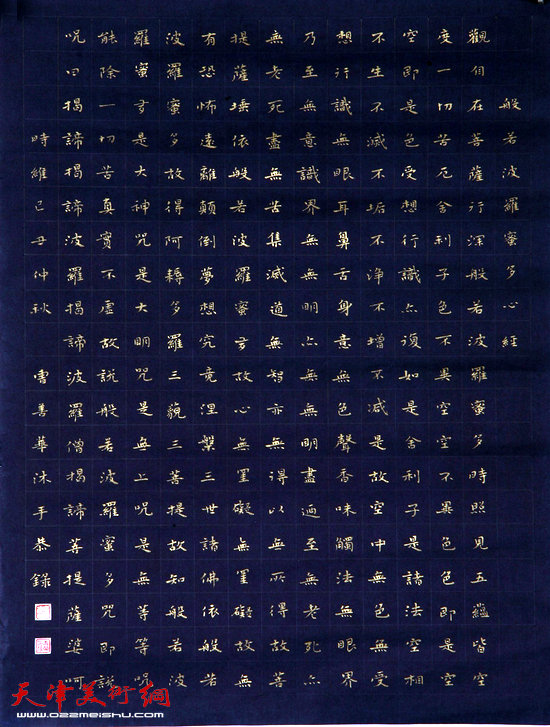 般若波羅蜜多心經
觀自在菩薩行深般若波羅蜜多時照見五蘊皆空
度一切苦厄舍利子色不異空空不異色色即是空
空即是色受想行識亦復如是舍利子是諸法空相
不生不滅不垢不淨不增不減是故空中無色無受
想行識無眼耳鼻舌身意無色聲香味觸法無眼界
乃至無意識界無無明亦無無明盡迺至無老死亦
無老死盡無苦集滅道無智亦無得以無所得故菩
提薩埵依般若波羅蜜多故心無罣礙無罣礙故無
有恐怖遠離顛倒夢想究竟涅槃三世諸佛依般若
波羅蜜多故得阿耨多羅三藐三菩提故知般若波
羅蜜多是大神咒是大明咒是無上咒是無等等咒
能除一切苦真實不虛故說般若波羅蜜多咒即說
咒曰揭諦揭諦波羅揭諦波羅僧揭諦菩提薩婆呵
時維己丑仲秋 曹善華沐手恭錄
天津美術網
www.022meishu.com